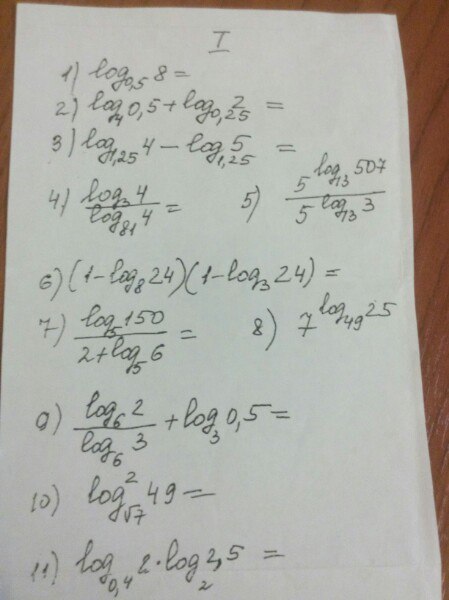 I
1) log₀,₅ 8 =
2) log₄ 0,5 + log₀,₂₅ 2 =
3) log₁,₂₅ 4 − log₁,₂₅ 5 =
4) log₃ 4 / log₈₁ 4 = 5) 5^(log₁₃ 507) / 5^(log₁₃ 3)
6) (1 − log₈ 24)(1 − log₃ 24) =
7) log₅ 150 / 2 + log₅ 6 = 8) 7^(log₄₉ 25)
9) log₆ 2 / log₆ 3 + log₃ 0,5 =
10) log²_√7 49 =
11) log₀,₄ 2 · log₂ 2,5 =